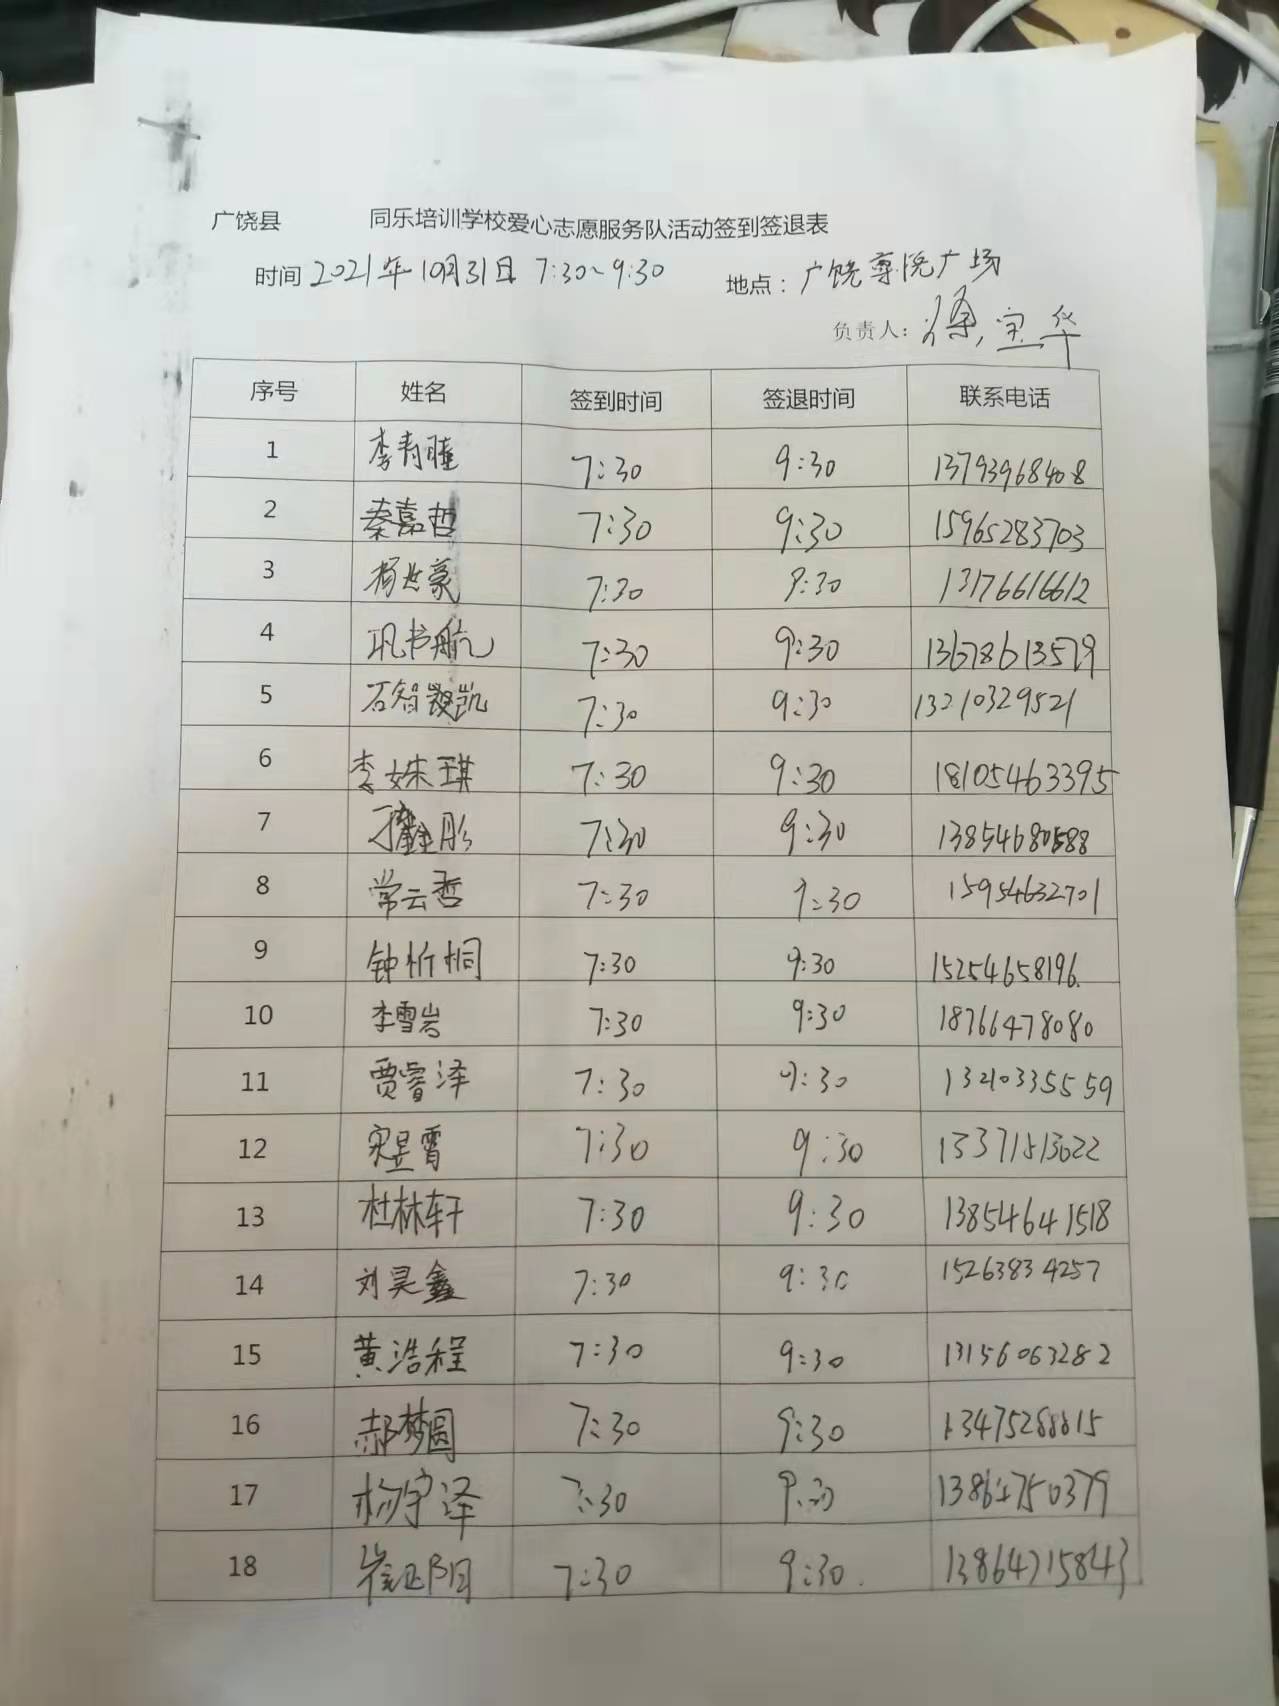 广饶县 同乐培训学校爱心志愿服务队活动签到签退表
时间 2021年10月31日 7:30~9:30 地点：广饶尊悦广场
负责人：徐宝华
序号 姓名 签到时间 签退时间 联系电话
1 李青瞳 7:30 9:30 13793968408
2 秦嘉哲 7:30 9:30 15965283703
3 杨世豪 7:30 9:30 13176616612
4 巩书航 7:30 9:30 13678613579
5 石智凯 7:30 9:30 13210329521
6 李姝琪 7:30 9:30 18105463395
7 7:30 9:30 13854680588
8 常云哲 7:30 9:30 15954632701
9 钟忻恫 7:30 9:30 15254658196
10 李雪岩 7:30 9:30 18766478080
11 贾睿泽 7:30 9:30 13210335559
12 宋昱霄 7:30 9:30 13371513622
13 杜林轩 7:30 9:30 13854641518
14 刘昊鑫 7:30 9:30 15263834257
15 黄浩程 7:30 9:30 13156063282
16 郝梦圆 7:30 9:30 13475288615
17 杨宇泽 7:30 9:30 13864750379
18 崔正阳 7:30 9:30 13864715843